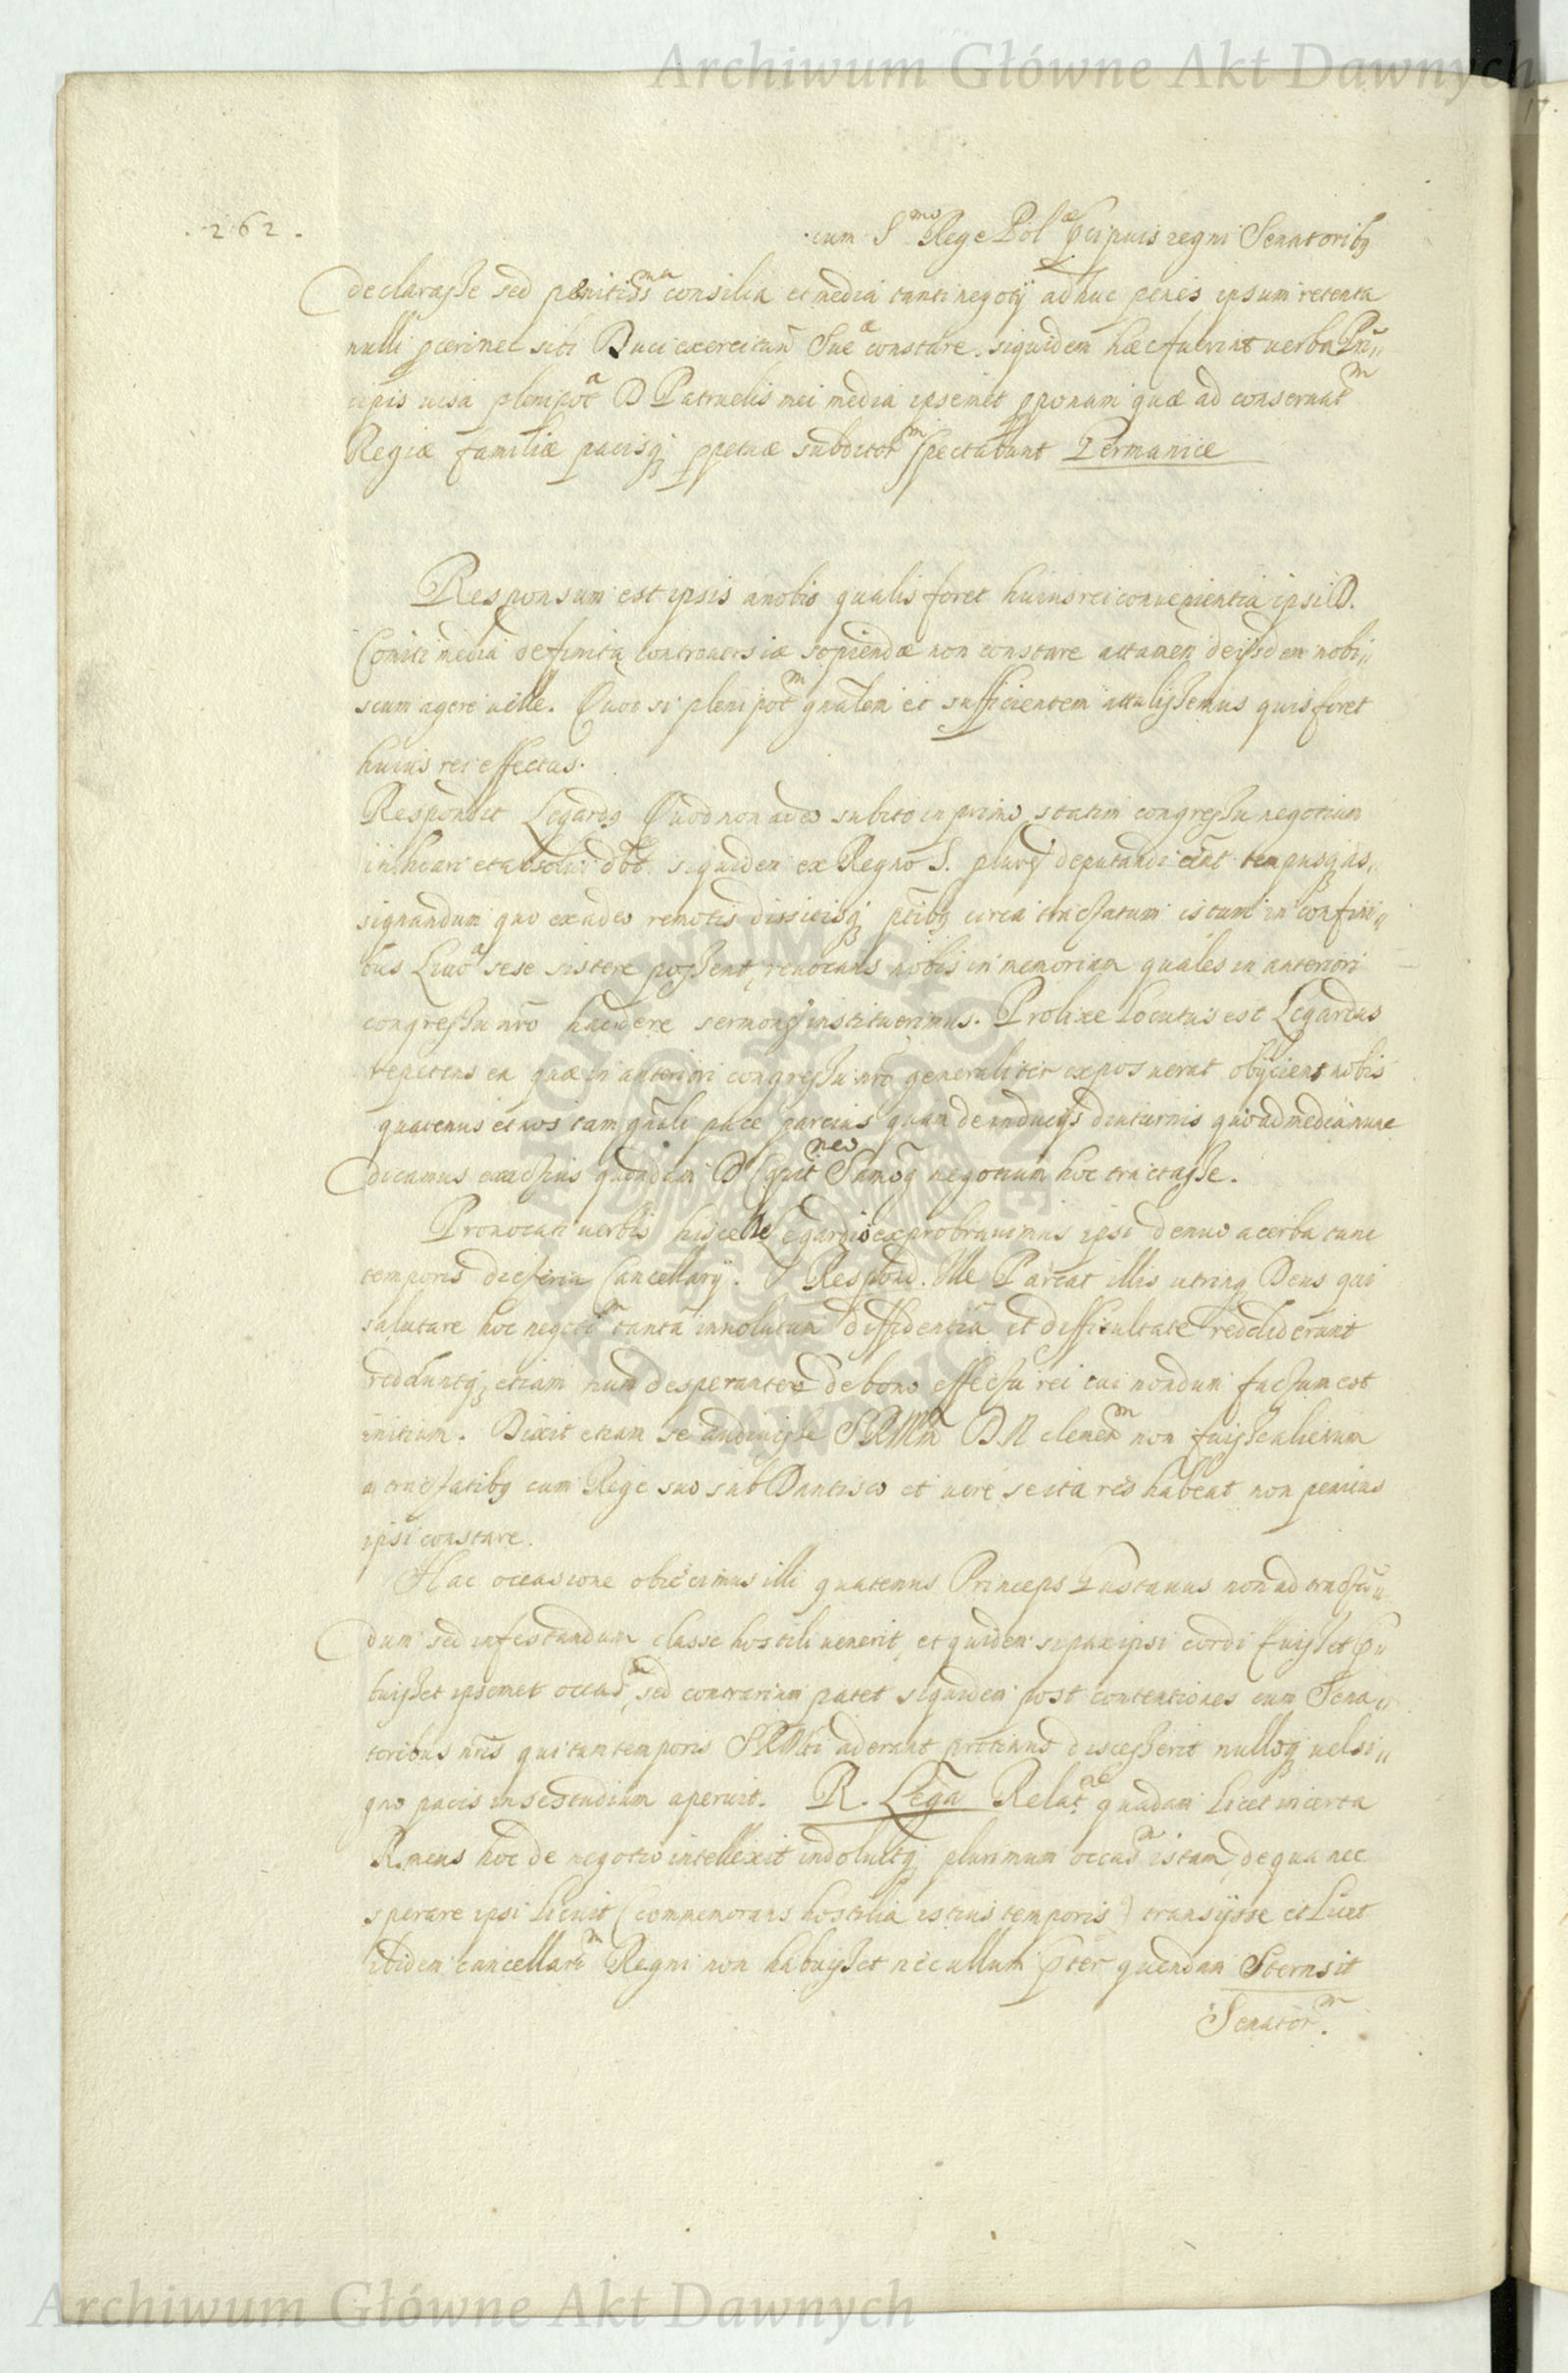 Archiwum Główne Akt Dawnych
. 262 .
cum S mo Rege Pol æ pcipuis regni Senatoribq
declarasse sed pænitiss ma consilia et media tanti negoty adhuc penes ipsum retenta
nulli pertinet sibi Duci exercituu Sue æ constare. siquidem hæc fuerint verba Prin„
cipis visa plenipot a D Patruelis mei media ipsemet pponam quæ ad conservat m
Regiæ familiæ pacisq ppetuæ subditor m spectabunt Germanice
Responsum est ipsis a nobis qualis foret huius rei convenientia ipsi D.
Comiti media definitą controversiæ sopiendæ non constare attamen de ijsdem nobi„
scum agere velle. Quod si plenipot m gnalem et sufficientem attulissemus quis foret
huius rei effectus.
Respondit Legardq Quod non adeo subito in primo statim congressu negotium
et absolui siquidem ex Regno S. plures deputandi tempusq as„
signandum quo ex adeo remotis dissitisq ptibq circa tractatum istum in confini„
bus Livo æ sese sistere possent, revocans nobis in memoriam quales in anteriori
congressu nro hac de re sermones instituerimus. Prolixe locutus est Legardus
repetens ea quæ in anteriori congressu nro generaliter exposuerat obijciens nobis
quatenus et vos tam gnali pace parcius quam de inducijs diuturnis quo ad media nunc
dicamus exactius quondam D Capit neo Samog negotium hoc tractasse.
Provocati verbis hisce Legardi exprobravimus ipsi denuo acerba tunc
temporis dicteria Cancellarij. Respond. Ille Parcat illis utrinq Deus qui
salutare hoc negoti m tanta involutum diffidentia et difficultate reddiderunt
reddуntq etiam num desperantes de bono effectu rei cui nondum factum est
initium. Dixit etiam se audivisse SRMtem D N clemen m non fuisse alienum
a tractatibq cum Rege suo sub Dantisco et vere se ita res habeat non penitus
ipsi constare.
Hac occasione obiecimus illi quatenus Princeps Gustavus non ad tractan„
dum sed infestandum classe hostili venerit, et quidem si pax ipsi cordi fuisset
buisset ipsemet occas m, sed contrarium patet siquidem post contentiones cum Sena„
toribus nris qui tum temporis SRMti aderant protinus discesserit nulloq vel si„
gno pacis in se studium aperuit. R. Lega Relat ne quadam licet incerta
R. meus hoc de negotio intellexit indoluitq plurimum occas m istam, de qua nec
sperare ipsi licuit (commemorans hostilia istius temporis) transijsse et licet
ibidem cancellari m Regni non habuisset nec ullum pter quendam Sternsit
Senator m.
Archiwum Główne Akt Dawnych